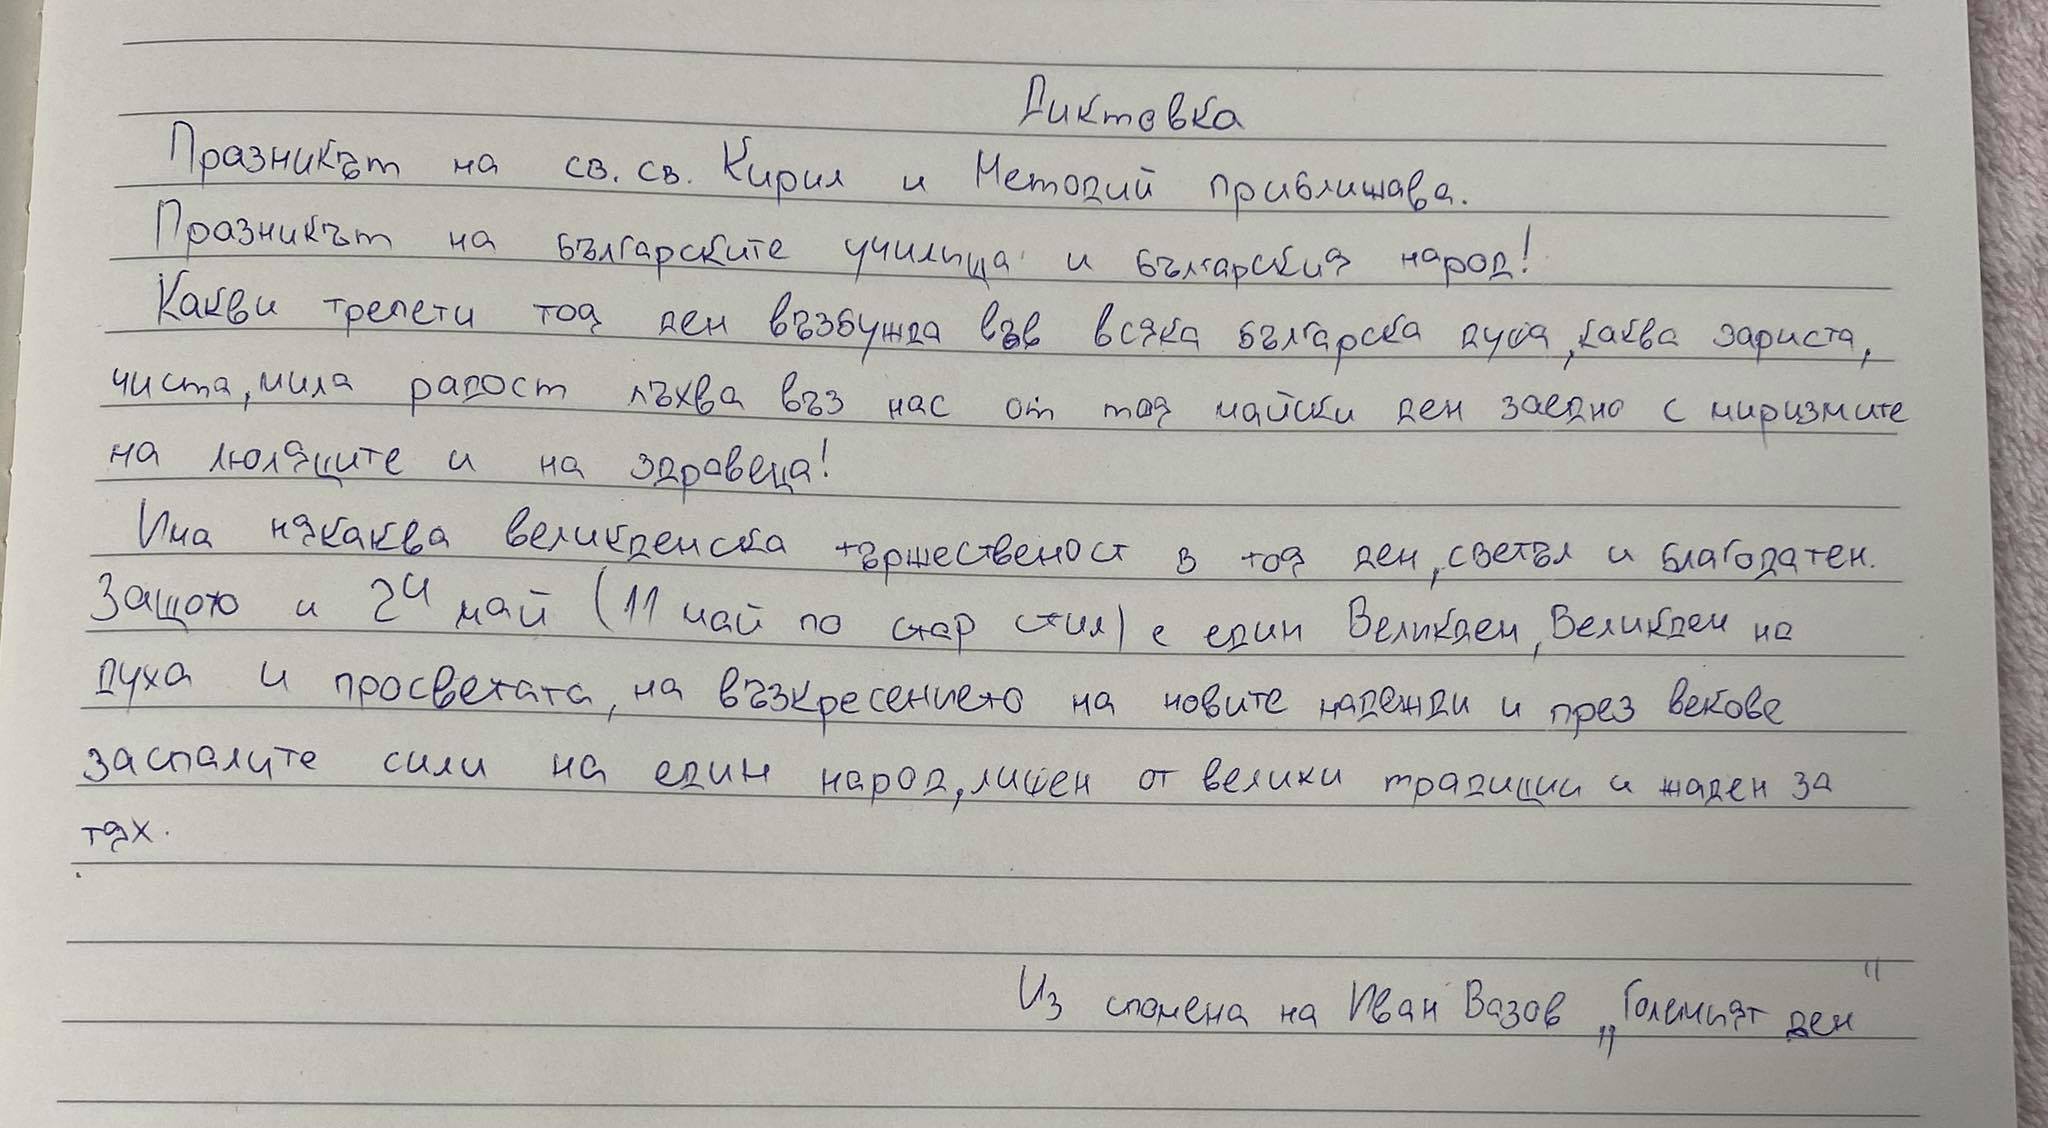 Диктовка
Празникът на св. св. Кирил и Методий приближава.
Празникът на българските училища и български народ!
Какви трепети тоя ден възбужда във всяка българска душа, каква зариста,
чиста, мила радост лъхва въз нас от тоя майски ден заедно с миризмите
на люляците и на здравеца!
Има някаква великденска тържественост в тоя ден, светъл и благодатен.
Защото и 24 май (11 май по стар стил) е един Великден, Великден на
духа и просветата, на възкресението на новите надежди и през векове
заспалите сили на един народ, лишен от велики традиции и жаден за
тях.
Из спомена на Иван Вазов „Големият ден“